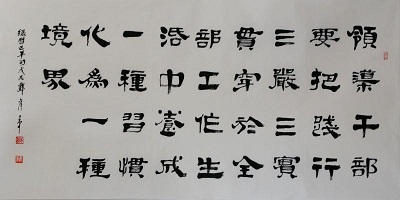 領導干部
要把踐行
三嚴三實
貫穿於全
部工作生
活中養成
一種習慣
化為一種
境界